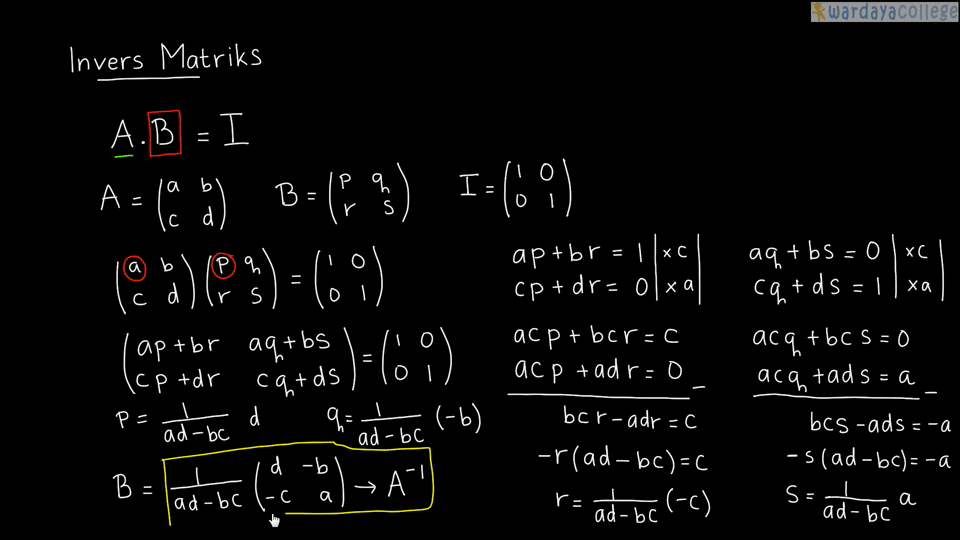 wardayacollege
Invers Matriks
A . B = I
A = (a b; c d)  B = (p q; r s)  I = (1 0; 0 1)
(a b; c d) (p q; r s) = (1 0; 0 1)
(ap+br aq+bs; cp+dr cq+ds) = (1 0; 0 1)
p = 1/(ad-bc) d  q = 1/(ad-bc) (-b)
B = 1/(ad-bc) (d -b; -c a) → A⁻¹
ap+br = 1 | ×c |
cp+dr = 0 | ×a |
acp+bcr = c
acp+adr = 0 -
bcr-adr = c
-r(ad-bc) = c
r = 1/(ad-bc) (-c)
aq+bs = 0 | ×c |
cq+ds = 1 | ×a |
acq+bcs = 0
acq+ads = a -
bcs-ads = -a
-s(ad-bc) = -a
s = 1/(ad-bc) a